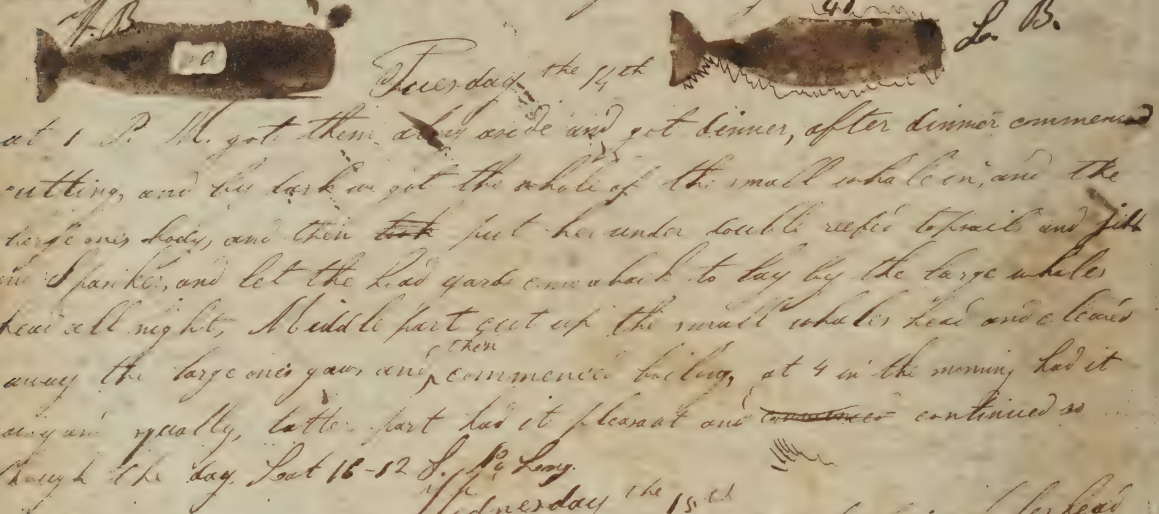 L. B. 40 L. B.
Tuesday the 14th
at 1 P. M. got them along aside and got dinner, after dinner commenced
cutting, and by dark we got the whole of the small whale in, and the
large ones body, and then took put her under double reefed topsails and jibb
and Spanker, and let the head yards come aback to lay by the large whales
head all night, Middle part cut up the small whales head and cleared
away the large ones jaw, and then commenced boiling, at 4 in the morning had it
squally, latter part had it pleasant and continued so
through the day. Lat 16-12 S. No Long.
Wednesday the 15th
head